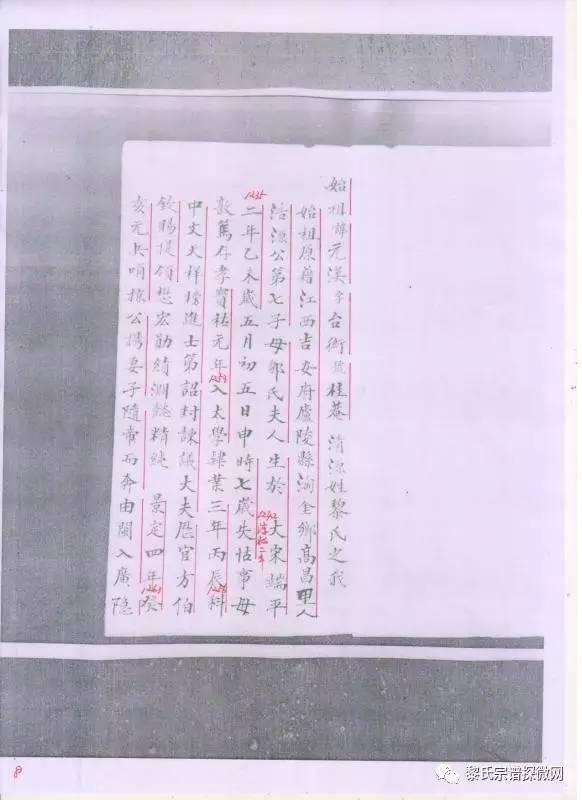 始祖諱元漢字台衡號桂菴 清源姓黎氏之我
始祖原籍江西吉安府廬陵縣淘金鄉高昌里人
浩源公第七子母鄒氏夫人 生於 大宋端平
二年乙未歲五月初五日申時七歲失怙事母
敦篤存孝寶祐元年入太學肄業三年丙辰科
中文天祥榜進士第詔封諫議大夫歷官方伯
欽賜提領懋宏勛績淵懿精純 景定四年癸
亥元兵哨據公携妻子隨帝而奔由閩入廣隱
1235
1242
淳祐二年
1253
1256
1263
8
黎氏宗谱探微网